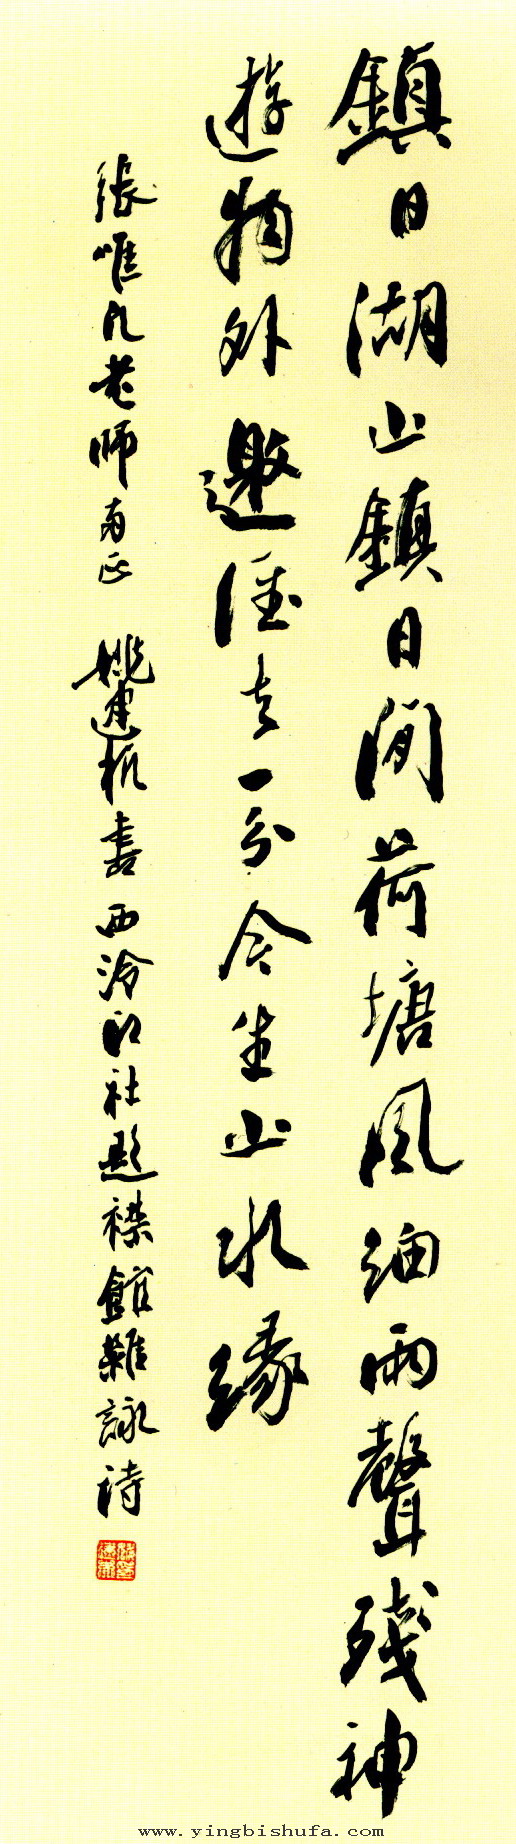 鎮日湖山鎮日閒荷塘風細雨聲殘神
遊物外邀僊去一分今生山水緣
張惟凡老師教正 姚建杭書西泠印社題襟館雜詠詩
www.yingbishufa.com